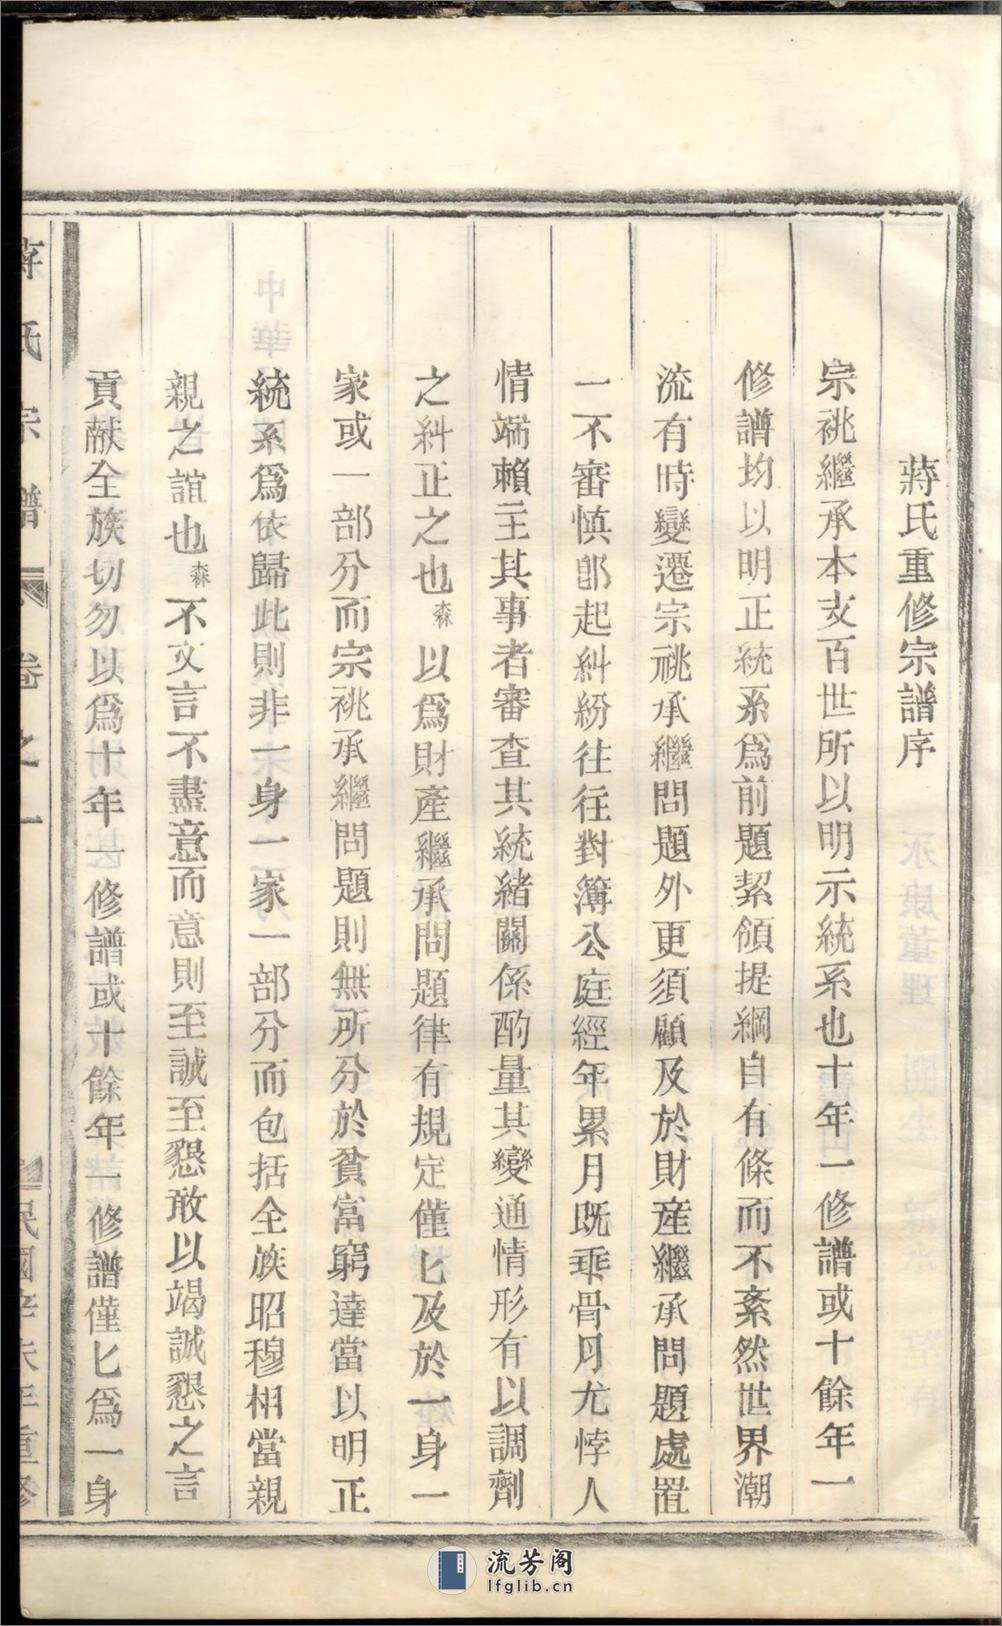 蔣氏重修宗譜序
宗祧繼承本支百世所以明示統系也十年一修譜或十餘年一
修譜均以明正統系爲前題絜領提綱自有條而不紊然世界潮
流有時變遷宗祧承繼問題外更須顧及於財産繼承問題處置
一不審慎卽起糾紛往往對簿公庭經年累月既乖骨月尤悖人
情端賴主其事者審查其統緒關係酌量其變通情形有以調劑
之糾正之也森以爲財產繼承問題律有規定僅匕及於一身一
家或一部分而宗祧承繼問題則無所分於貧富窮達當以明正
統系爲依歸此則非一身一家一部分而包括全族昭穆相當親
親之誼也森不文言不盡意而意則至誠至懇敢以竭誠懇之言
貢献全族切勿以爲十年一修譜或十餘年一修譜僅匕爲一身
蔣氏宗譜 卷之一 民國辛未年重修
流芳阁
lfglib.cn